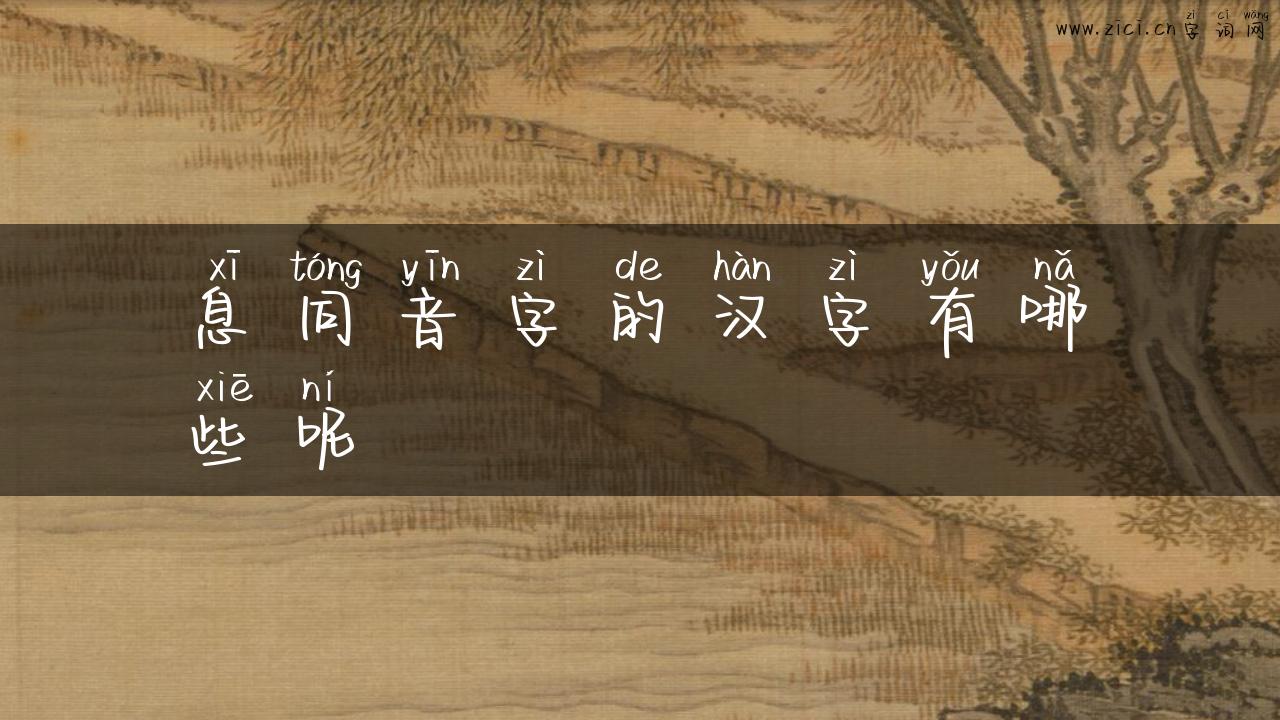 zì cí wǎng
www.zici.cn 字 词 网
xī tóng yīn zì de hàn zì yǒu nǎ
息 同 音 字 的 汉 字 有 哪
xiē ní
些 呢